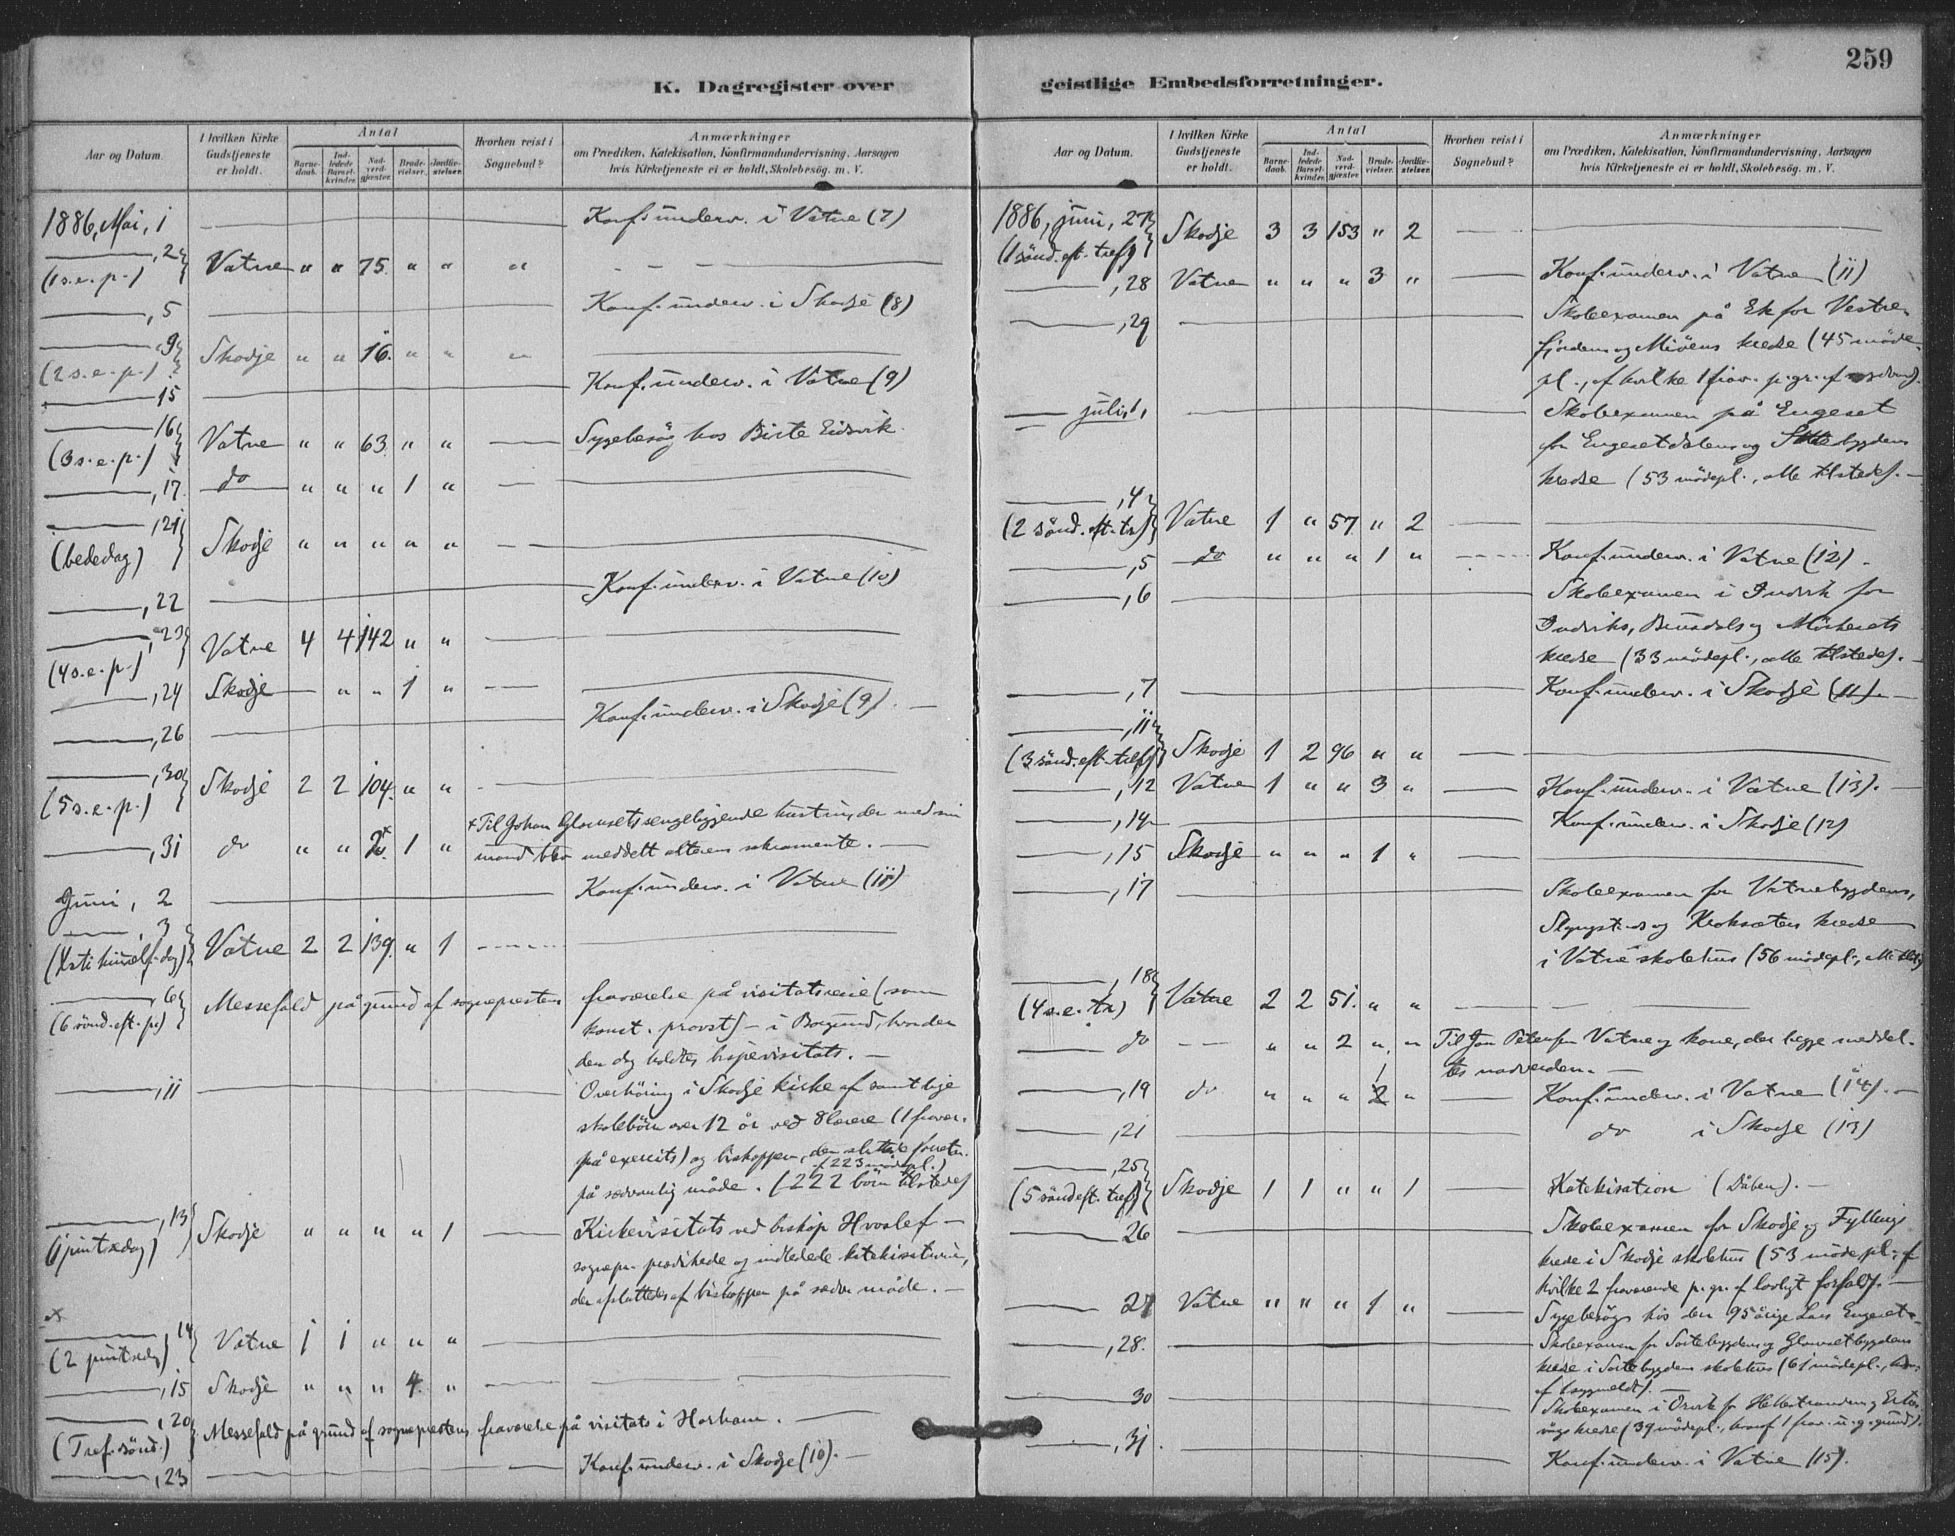 259
K. Dagregister over geistlige Embedsforretninger.
Aar og Datum.
I hvilken Kirke Gudstjeneste er holdt.
Antal
Barnedaab.
Indledede Barselkvinder.
Nadverdgjæster.
Brudevielser.
Jordfæstelser.
Hvorhen reist i Sognebud?
Anmærkninger
om Prædiken, Katekisation, Konfirmandundervisning, Aarsagen
hvis Kirketjeneste ei er holdt, Skolebesög. m. V.
1886, Mai, 1 Konf. underv. i Vatne (7)
, 2 (1 s. e. p.) Vatne " " 75. " " "
, 5 Konf. underv. i Skodje (8)
, 9 (2 s. e. p.) Skodje " " 16. " " "
15 Konf. underv. i Vatne (9)
16 (3 s. e. p.) Vatne " " 63. " " Sygebesög hos Birte Eidsvik.
, 17. do " " " 1 "
, 21 (bededag) Skodje " " " " "
, 22 Konf. underv. i Vatne (10)
, 23 (4 s. e. p.) Vatne 4 4 142 " "
, 24 Skodje " " 1 "
, 26 Konf. underv. i Skodje (9).
, 30 (5 s. e. p.) Skodje 2 2 104. " "
, 31 do " " 2. 1 " x Til Johan sengeliggende hustru, der med sin
mand blev meddelt alterens sakramente.
Juni, 2 Konf. underv. i Vatne (11)
, 3 (Xsti himmelf. dag) Vatne 2 2 139. " 1
, 6 (6 sönd. eft. p.) Messefald på grund af sogneprestens fraværelse på visitatsreise (som
konst. provst) - i Borgund, hvor den
den dag holdtes bispevisitats.
, 11 Overhöring i Skodje kirke af samtlige
skolebörn over 12 år ved 8 lærere (1 fravær.
på exercits) og biskoppen, den sidste forret.
af 223 mödepl.)
på sædvanlig måde. (222 börn tilstede)
, 13 (1 pintsedag) Skodje " " " " 1 Kirkevisitats ved biskop Hvoslef -
sognepr. prædikede og indledede katekisationen,
der afsluttedes af biskoppen på sædv. måde.
x
, 14 (2 pintsedag) Vatne 1 1 " " "
, 15 Skodje " " " 4. "
, 20 (Tref. sönd.) Messefald på grund af sogneprestens fraværelse på visitats i Harham.
, 23 Konf. underv. i Skodje (10).
Aar og Datum.
I hvilken Kirke Gudstjeneste er holdt.
Antal
Barnedaab.
Indledede Barselkvinder.
Nadverdgjæster.
Brudevielser.
Jordfæstelser.
Hvorhen reist i Sognebud?
Anmærkninger
om Prædiken, Katekisation, Konfirmandundervisning, Aarsagen
hvis Kirketjeneste ei er holdt, Skolebesög. m. V.
1886, juni, 27 (1 sönd. eft. tref.) Skodje 3 3 153 " 2
, 28 Vatne " " " 3 " Konf. underv. i Vatne (11)
, 29 Skoleexamen på Ek for Vestre-
fjordens og Miöens kredse (45 möde-
pl., af hvilke 1 frav. p. gr. af
juli, 1, Skoleexamen på Engeset
for Engesetdalens og bygdens
kredse (53 mödepl., alle tilstede).
, 4 (2 sönd. eft. tr.) Vatne 1 " 57. " 2
, 5 do " " " 1 " Konf. underv. i Vatne (12).
, 6 Skoleexamen i for
Brusdals og
kredse (33 mödepl., alle tilstede).
, 7 Konf. underv. i Skodje (11).
, 11 (3 sönd. eft. tref.) Skodje 1 2 96 " "
, 12 Vatne 1 " " 3 " Konf. underv. i Vatne (13).
, 14 Konf. underv. i Skodje (12)
, 15 Skodje " " " 1 "
, 17 Skoleexamen for Vatnebygdens,
Slyngstads og Kroksæters kredse
i Vatne skolehus (56 mödepl., alle tilst.)
, 18 (4 s. e. tr.) Vatne 2 2 51. " "
do " " 2 " " Til Jon Petersen Vatne og kone, der begge meddel-
tes nadverden.
, 19 do " " " 2 " Konf. underv. i Vatne (14).
, 21 do i Skodje (13)
, 25 (5 sönd. eft. tref.) Skodje 1 1 " " 1 Katekisation (Dåben).
26 Skoleexamen for Skodje og Fyllings
kreds i Skodje skolehus (53 mödepl. af
hvilke 2 fraværende p. gr. af lovligt forfald).
27 Vatne " " " 1 " Sygebesög hos den 95 årige Lars Engeset.
, 28. Skoleexamen for Sortebygdens og Glomsetbygdens
kredse i Sortebygdens skolehus (61 mödepl.,
30 Skoleexamen i for og
kredse (39 mödepl., hvoraf 1 frav. u. g. grund).
, 31. Konf. underv. i Vatne (15).